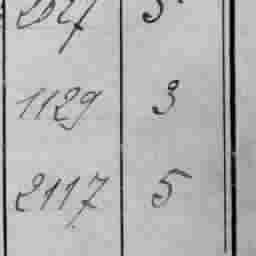 1129 3
2117 5